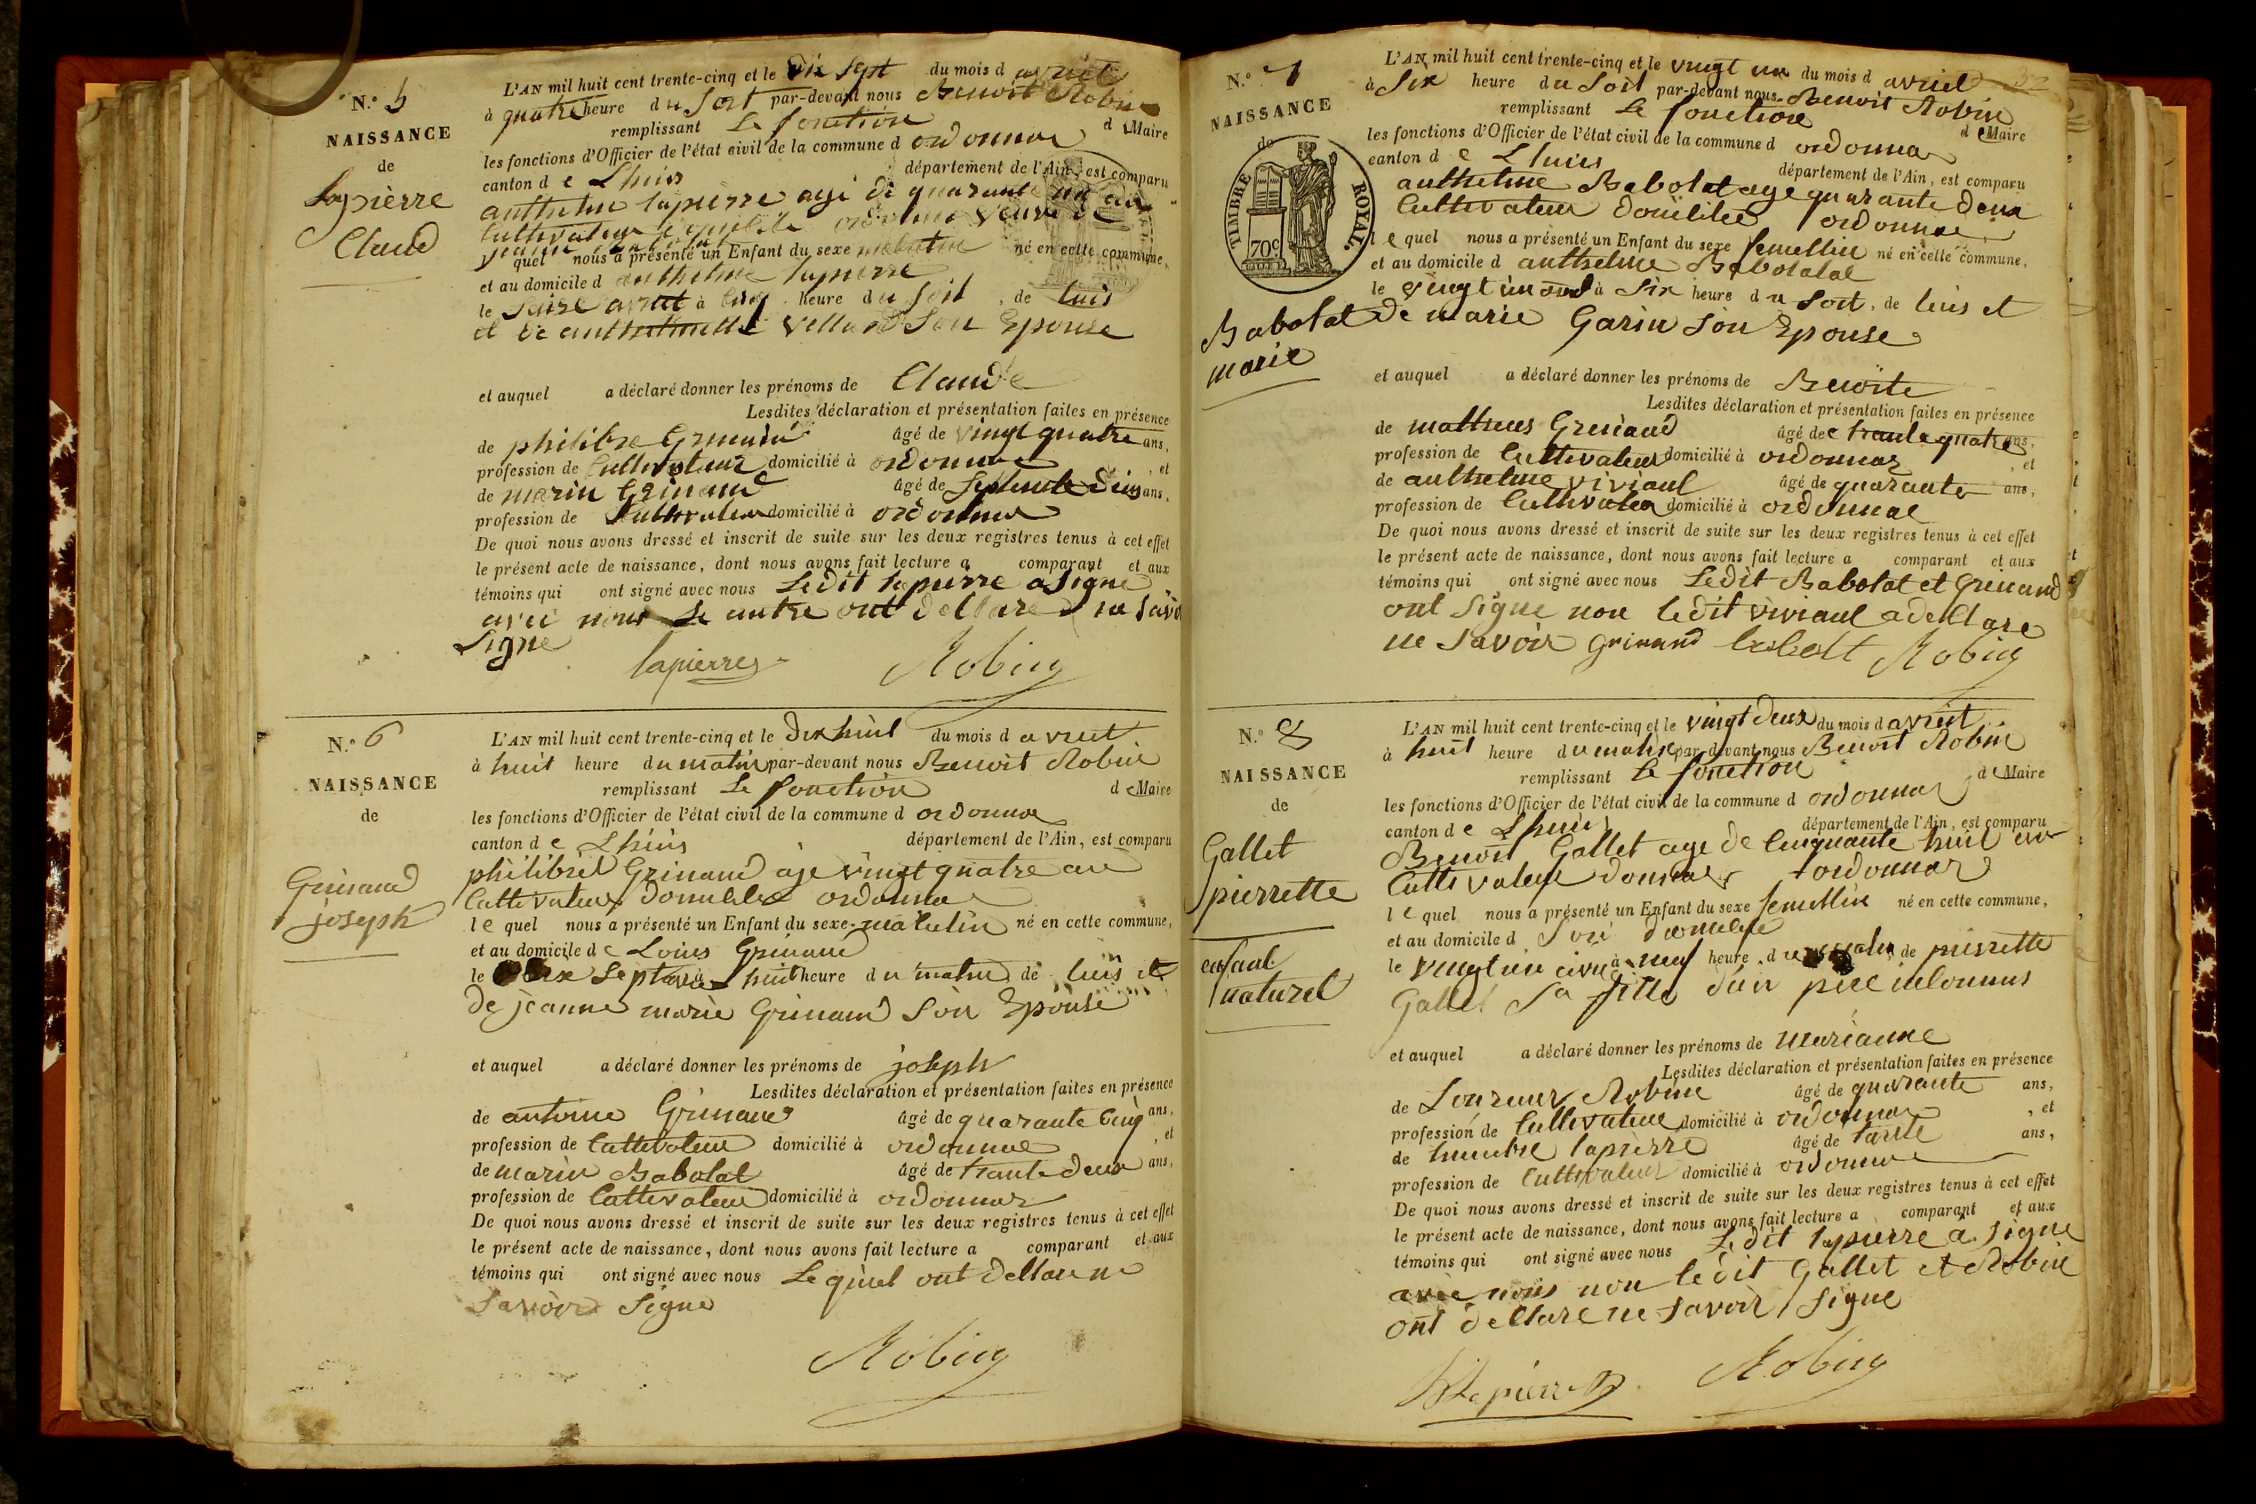 N.° 5
NAISSANCE
de
Lapierre
Claud
L'AN mil huit cent trente-cinq et le dix sept du mois d avriel
à quatre heure du soit par-devant nous Benoit Robin
remplissant Le fonction de Maire
les fonctions d'Officier de l'état civil de la commune d ordonnax
canton de Lhuis département de l'Ain, est comparu
anthelme lapierre agé de quarante un an
Cultivateur ordonnax veuve de
quel nous a présenté un Enfant du sexe masculin né en cette commune,
et au domicile d anthelme lapierre
le saise avriel à cinq heure du soit, de luis
et de anthelmette Velland son Epouse
et auquel a déclaré donner les prénoms de Claude
Lesdites déclaration et présentation faites en présence
de philibre Grinand âgé de vingt quatre ans,
profession de Cultivateur domicilié à ordonnax, et
de marin Grinand âgé de septente deux ans,
profession de Cultivateur domicilié à ordonnax
De quoi nous avons dressé et inscrit de suite sur les deux registres tenus à cet effet
le présent acte de naissance, dont nous avons fait lecture a comparant et aux
témoins qui ont signé avec nous Ledit lapierre a signe
avec nous Le autre ont dellare ne savoi
signe
lapierre Robin
N.° 6
NAISSANCE
de
Grinand
joseph
L'AN mil huit cent trente-cinq et le dix huit du mois d avriel
à huit heure du matin par-devant nous Benoit Robin
remplissant Le fonction de Maire
les fonctions d'Officier de l'état civil de la commune d ordonnax
canton de Lhuis département de l'Ain, est comparu
philibret Grinand aje vingt quatre an
Cultivateur domicilie ordonnax
le quel nous a présenté un Enfant du sexe masculin né en cette commune,
et au domicile de Louis Grinand
le dix sept avriel à huit heure du matin de luis et
de jeanne marie Grinand son Epouse
et auquel a déclaré donner les prénoms de joseph
Lesdites déclaration et présentation faites en présence
de antoine Grinand âgé de quarante cinq ans,
profession de Cultivateur domicilié à ordonnax, et
de marin Babolat âgé de trante deux ans,
profession de Cultivateur domicilié à ordonnax
De quoi nous avons dressé et inscrit de suite sur les deux registres tenus à cet effet
le présent acte de naissance, dont nous avons fait lecture a comparant et aux
témoins qui ont signé avec nous Le quel ont dellare ne
savoir signe
Robin
N.° 7
NAISSANCE
de
TIMBRE ROYAL.
70c
Babolat
marie
L'AN mil huit cent trente-cinq et le vingt un du mois d avriel 32
à six heure du soit par-devant nous Benoit Robin
remplissant Le fonction de Maire
les fonctions d'Officier de l'état civil de la commune d ordonnax
canton de Lhuis département de l'Ain, est comparu
anthelme Babolat age quarante deux
Cultivateur domicilie ordonnax
le quel nous a présenté un Enfant du sexe femellin né en cette commune,
et au domicile d anthelme Babolat
le vingt un à six heure du soit, de luis et
de marie Garin son Epouse
et auquel a déclaré donner les prénoms de Benoite
Lesdites déclaration et présentation faites en présence
de mathieus Grenand âgé de trante quatre ans,
profession de Cultivateur domicilié à ordonnax, et
de anthelme viviant âgé de quarante ans,
profession de Cultivateur domicilié à ordonnax
De quoi nous avons dressé et inscrit de suite sur les deux registres tenus à cet effet
le présent acte de naissance, dont nous avons fait lecture a comparant et aux
témoins qui ont signé avec nous Ledit Babolat et Grenand
ont signe non ledit viviant a dellare
ne savoir grinand Robin
N.° 8
NAISSANCE
de
Gallet
pierrette
enfant
naturel
L'AN mil huit cent trente-cinq et le vingt deux du mois d avriel
à huit heure du matin par-devant nous Benoit Robin
remplissant Le fonction de Maire
les fonctions d'Officier de l'état civil de la commune d ordonnax
canton de Lhuis département de l'Ain, est comparu
Benoit Gallet age de cinquante huit an
Cultivateur ordonnax
le quel nous a présenté un Enfant du sexe femellin né en cette commune,
et au domicile d son domicile
le vingt un à neuf heure du matin de pierrette
Gallet sa fille d'un pere inconnus
et auquel a déclaré donner les prénoms de marianne
Lesdites déclaration et présentation faites en présence
de Robin âgé de quarante ans,
profession de Cultivateur domicilié à ordonnax, et
de humbre lapierre âgé de tante ans,
profession de Cultivateur domicilié à ordonnax
De quoi nous avons dressé et inscrit de suite sur les deux registres tenus à cet effet
le présent acte de naissance, dont nous avons fait lecture a comparant et aux
témoins qui ont signé avec nous Ledit lapierre a signe
avec nous non ledit Gallet et Robin
ont dellare ne savoir signe
Lapierre Robin